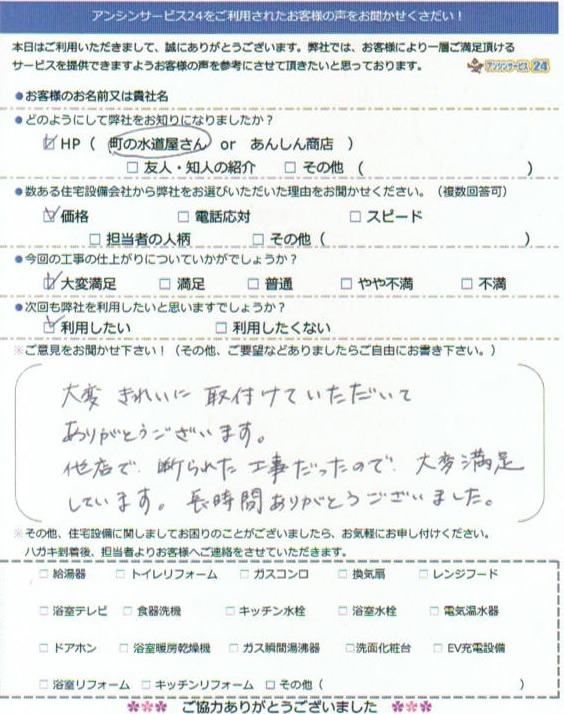 アンシンサービス24をご利用されたお客様の声をお聞かせくさだい！
本日はご利用いただきまして、誠にありがとうございます。弊社では、お客様により一層ご満足頂ける
サービスを提供できますようお客様の声を参考にさせて頂きたいと思っております。 アンシンサービス24
●お客様のお名前又は貴社名
●どのようにして弊社をお知りになりましたか？
☑ HP （ 町の水道屋さん or あんしん商店 ）
□ 友人・知人の紹介 □ その他 （ ）
●数ある住宅設備会社から弊社をお選びいただいた理由をお聞かせください。（複数回答可）
☑ 価格 □ 電話応対 □ スピード
□ 担当者の人柄 □ その他（ ）
●今回の工事の仕上がりについていかがでしょうか？
☑ 大変満足 □ 満足 □ 普通 □ やや不満 □ 不満
●次回も弊社を利用したいと思いますでしょうか？
☑ 利用したい □ 利用したくない
※ご意見をお聞かせ下さい！（その他、ご要望などありましたらご自由にお書き下さい。）
大変 きれいに 取付けていただいて
ありがとうございます。
他店で、断られた工事だったので、大変満足
しています。長時間ありがとうございました。
※その他、住宅設備に関しましてお困りのことがございましたら、お気軽にお申し付けください。
ハガキ到着後、担当者よりお客様へご連絡をさせていただきます。
□ 給湯器 □ トイレリフォーム □ ガスコンロ □ 換気扇 □ レンジフード
□ 浴室テレビ □ 食器洗機 □ キッチン水栓 □ 浴室水栓 □ 電気温水器
□ ドアホン □ 浴室暖房乾燥機 □ ガス瞬間湯沸器 □ 洗面化粧台 □ EV充電設備
□ 浴室リフォーム □ キッチンリフォーム □ その他（ ）
ご協力ありがとうございました